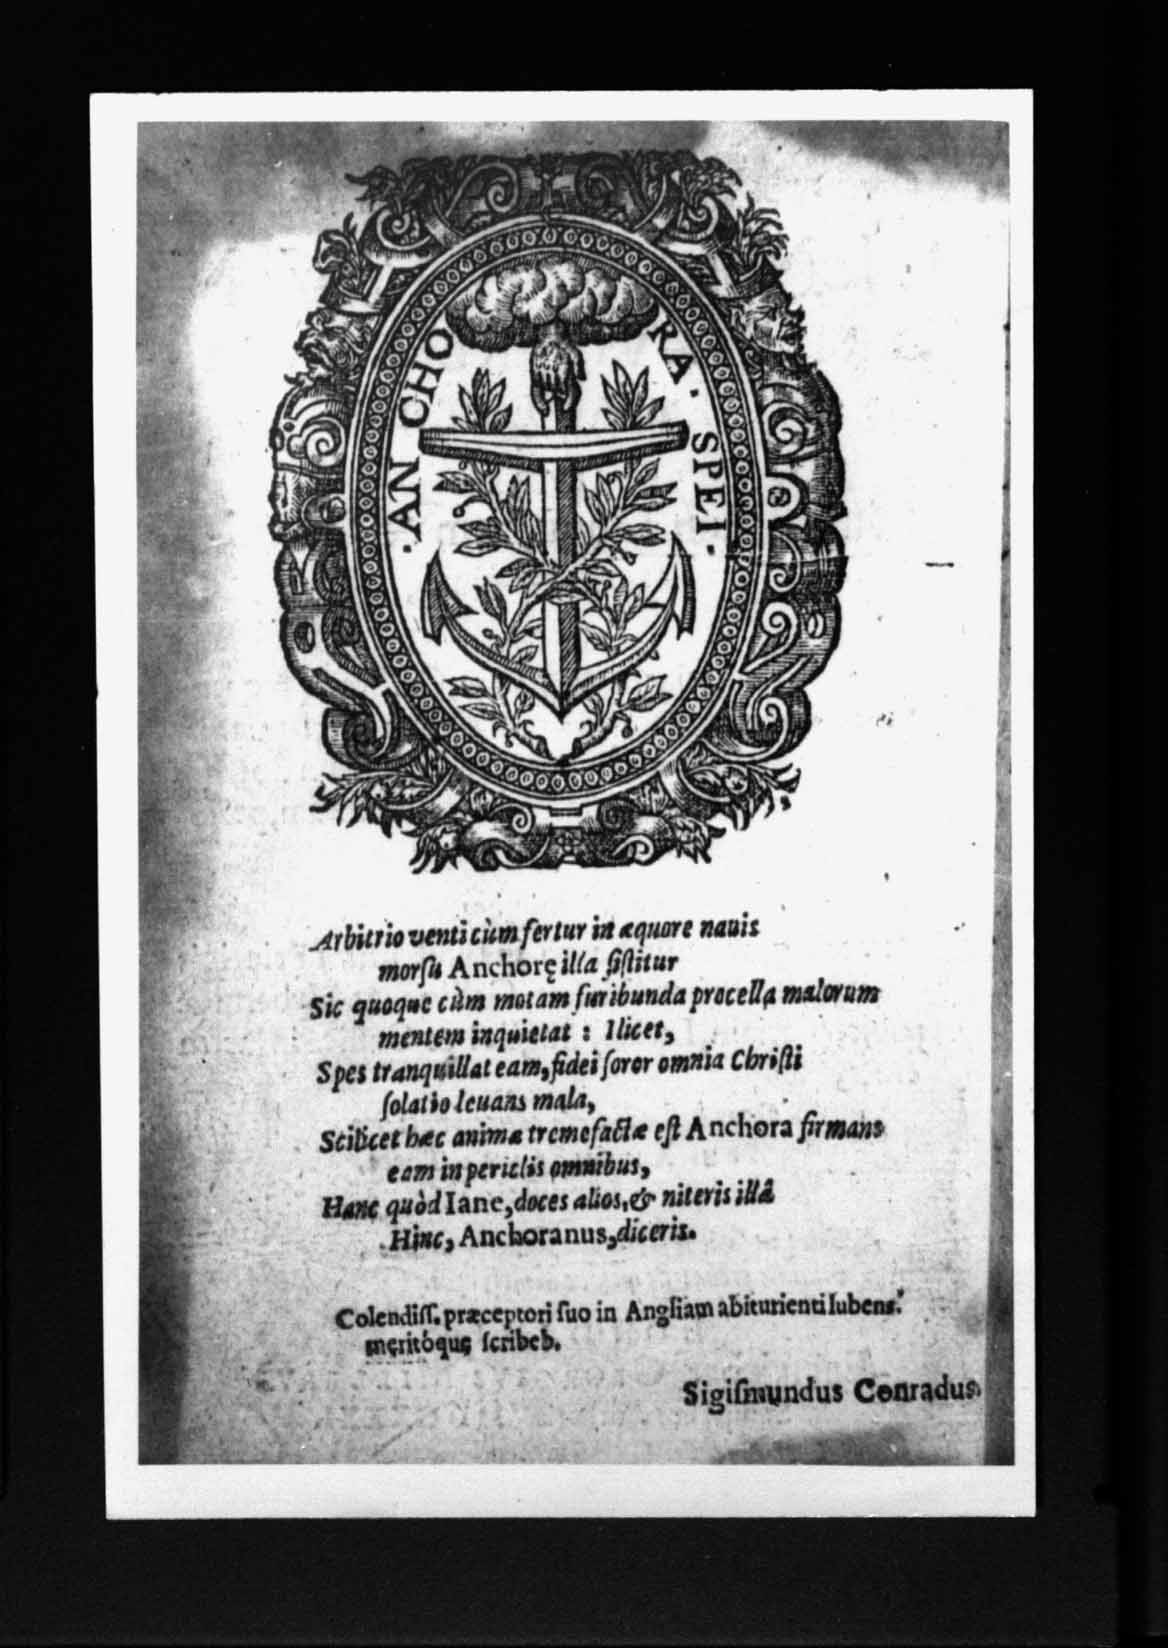 ·ANCHORA·SPEI·
Arbitrio venti cùm fertur in æquore nauis
morſu Anchorę illa ſiſtitur
Sic quoque cùm motam furibunda procella malorum
mentem inquietat : Ilicet,
Spes tranquillat eam, fidei ſoror omnia Chriſti
ſolatio leuans mala,
Scilicet hæc animæ tremefactæ eſt Anchora firmans
eam in periclis omnibus,
Hanc quòd Iane, doces alios, & niteris illâ
Hinc, Anchoranus, diceris.
Colendiſſ. præceptori ſuo in Angliam abiturienti lubens.
meritóque ſcribeb.
Sigiſmundus Conradus.